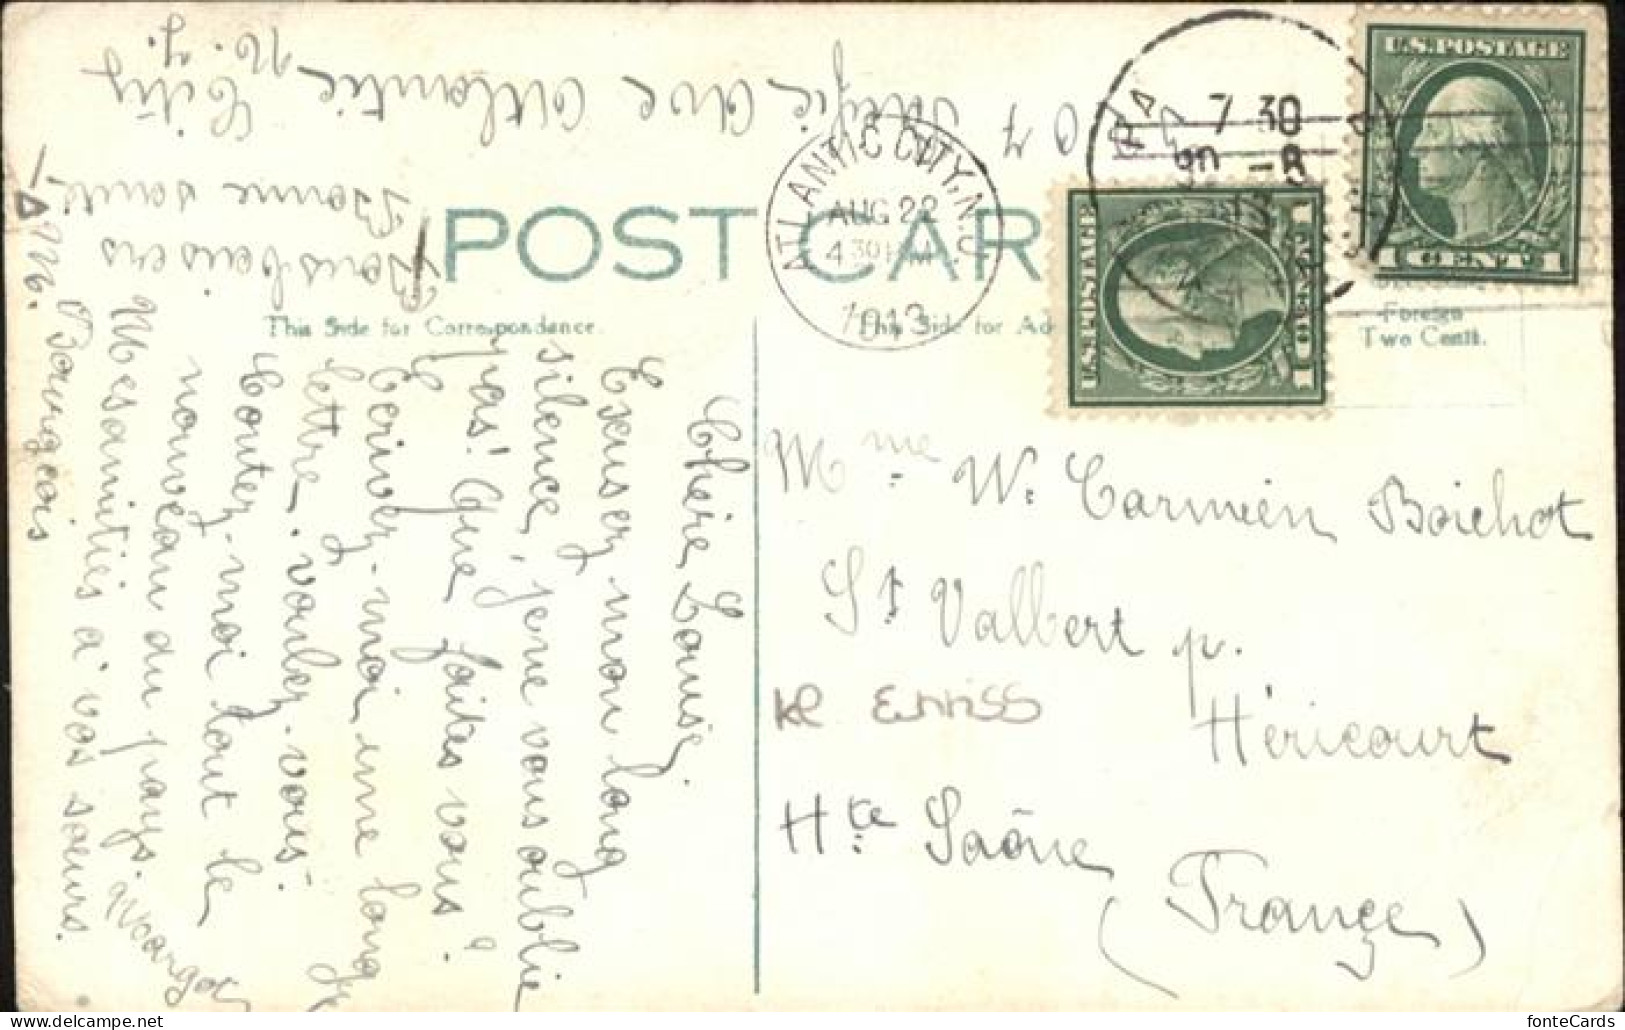 U.S. POSTAGE
1 CENT 1
U.S. POSTAGE
1 CENT 1
ATLANTIC CITY, N.J.
AUG 22
4 30 PM
1913
7 30
POST CARD
This Side for Correspondence.
This Side for Ad
Foreign
Two Cents.
Chère Louise.
Excusez mon long
silence, je ne vous oublie
pas! Que faites vous?
Ecrivez-moi une longue
lettre. voulez-vous?
Contez-moi tout le
nouveau du pays.
Mes amitiés à vos sœurs.
Margot
Bourgeois
Bons baisers
Bonne santé
ave Atlantic City
N. J.
Mme W. Carmien Boichot
St Valbert p.
Héricourt
Hte Saône
(France)
fonteCards